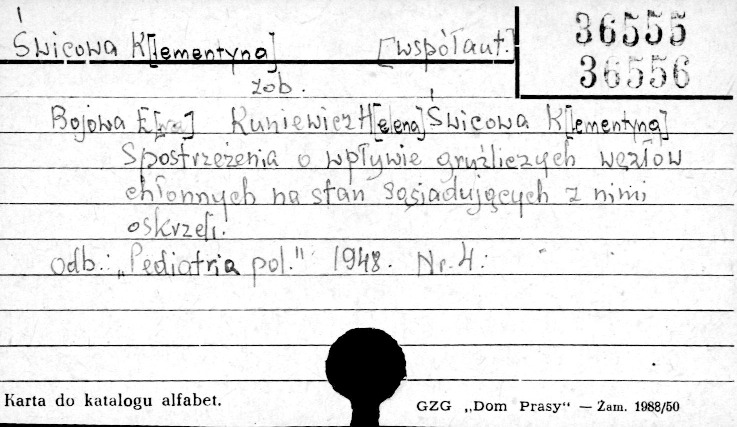 Świcowa K[lementyna] [współaut.]
36555
36556
zob.
Bojowa E[wa] Kuniewicz H[elena] Świcowa K[lementyna]
Spostrzeżenia o wpływie gruźliczych węzłów
chłonnych na stan sąsiadujących z nimi
oskrzeli.
odb.: „Pediatria pol." 1948. Nr. 4.
Karta do katalogu alfabet.
GZG „Dom Prasy" — Zam. 1988/50